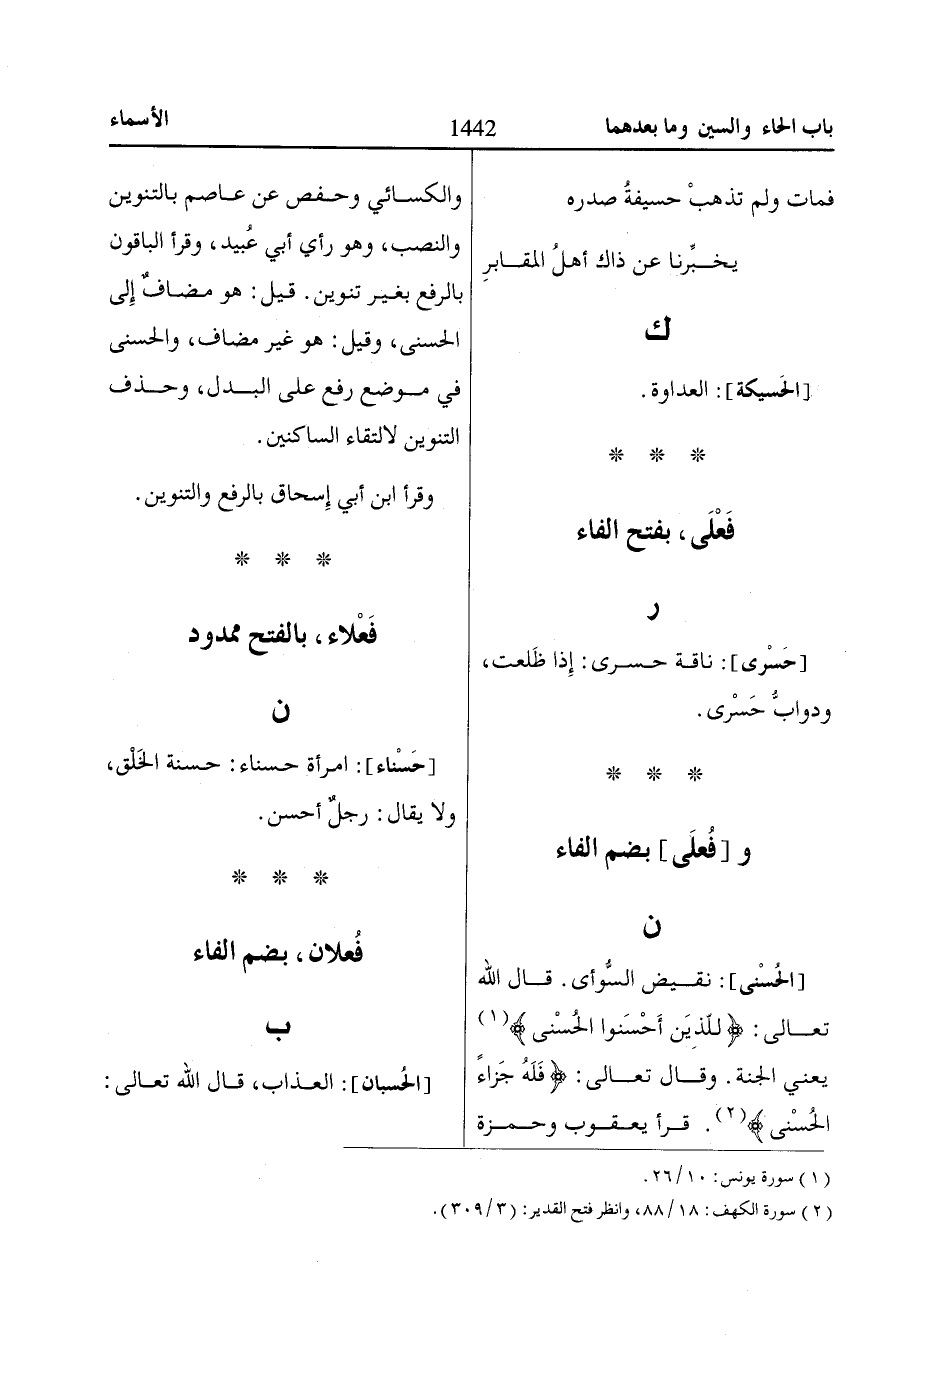 باب الحاء والسين وما بعدهما
1442
الأسماء
فمات ولم تذهبْ حسيفةُ صدره
يخــبِّرنا عن ذاك أهلُ المقــابرِ
ك
[الحَسيكة]: العداوة.
* * *
فَعْلَى، بفتح الفاء
ر
[حَسْرى]: ناقة حسرى: إذا ظَلعت،
ودوابُّ حَسْرى.
* * *
و [فُعلَى] بضم الفاء
ن
[الحُسْنى]: نقـيض السُّوأى. قـال الله
تعــالى: ﴿للّذيَن أَحْسَنوا الحُسْنى﴾(١)
يعني الجنة. وقــال تعــالى: ﴿فَلَهُ جَزاءً
الحُسْنى﴾(٢). قـرأ يعـقـوب وحـمـزة
والكسـائي وحـفص عن عـاصم بالتنوين
والنصب، وهو رأي أبي عُبيد، وقرأ الباقون
بالرفع بغـير تنوين. قـيل: هو مـضـافٌ إلى
الحسنى، وقيل: هو غير مضاف، والحسنى
في مـوضع رفع على البـدل، وحـذف
التنوين لالتقاء الساكنين.
وقرأ ابن أبي إسحاق بالرفع والتنوين.
* * *
فَعْلاء، بالفتح ممدود
ن
[حَسْناء]: امرأة حسناء: حسنة الخَلْق،
ولا يقال: رجلٌ أحسن.
* * *
فُعلان، بضم الفاء
ب
[الحُسبان]: العـذاب، قـال الله تعـالى:
(١) سورة يونس: ١٠/٢٦.
(٢) سورة الكهف: ١٨/٨٨، وانظر فتح القدير: (٣/٣٠٩).